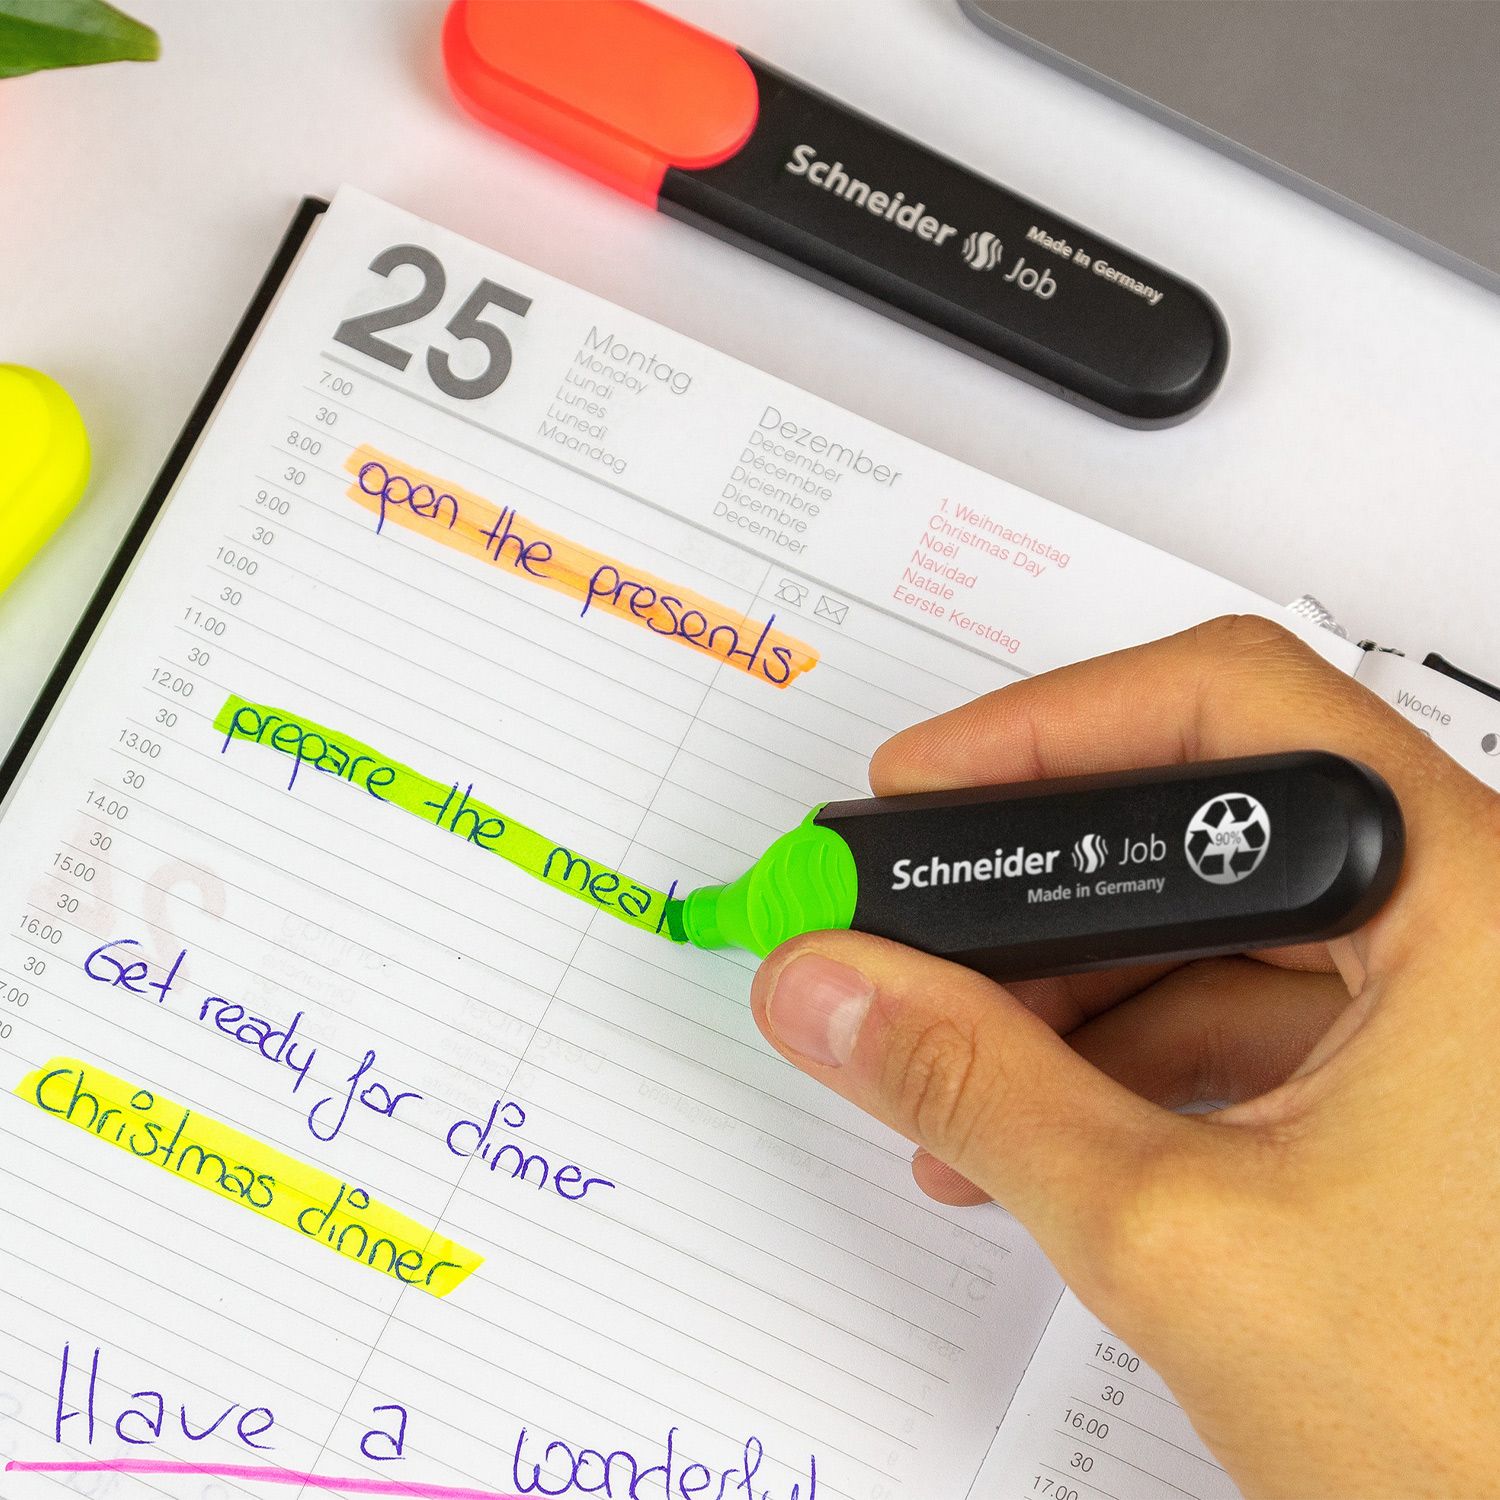 Schneider Job
Made in Germany
25
Montag
Monday
Lundi
Lunes
Lunedì
Maandag
Dezember
December
Décembre
Diciembre
Dicembre
December
1. Weihnachtstag
Christmas Day
Noël
Navidad
Natale
Eerste Kerstdag
Woche
7.00
30
8.00
open the presents
30
9.00
30
10.00
30
11.00
30
12.00
prepare the meal
30
13.00
30
14.00
30
15.00
30
16.00
Get ready for dinner
30
7.00
30
Christmas dinner
Have a wonderful
Schneider Job
Made in Germany
90%
15.00
30
16.00
30
17.00